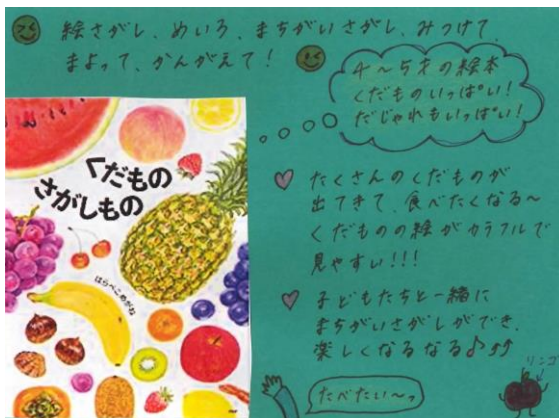 絵さがし、めいろ、まちがいさがし、みつけて、
まよって、かんがえて!
4〜5才の絵本
くだものいっぱい!
だじゃれもいっぱい!
くだもの
さがしもの
はらぺこめがね
たくさんのくだものが
出てきて、食べたくなる〜
くだものの絵がカラフルで
見やすい!!!
子どもたちと一緒に
まちがいさがしができ、
楽しくなるなる♪♪♪
たべたい〜っ
リンゴ